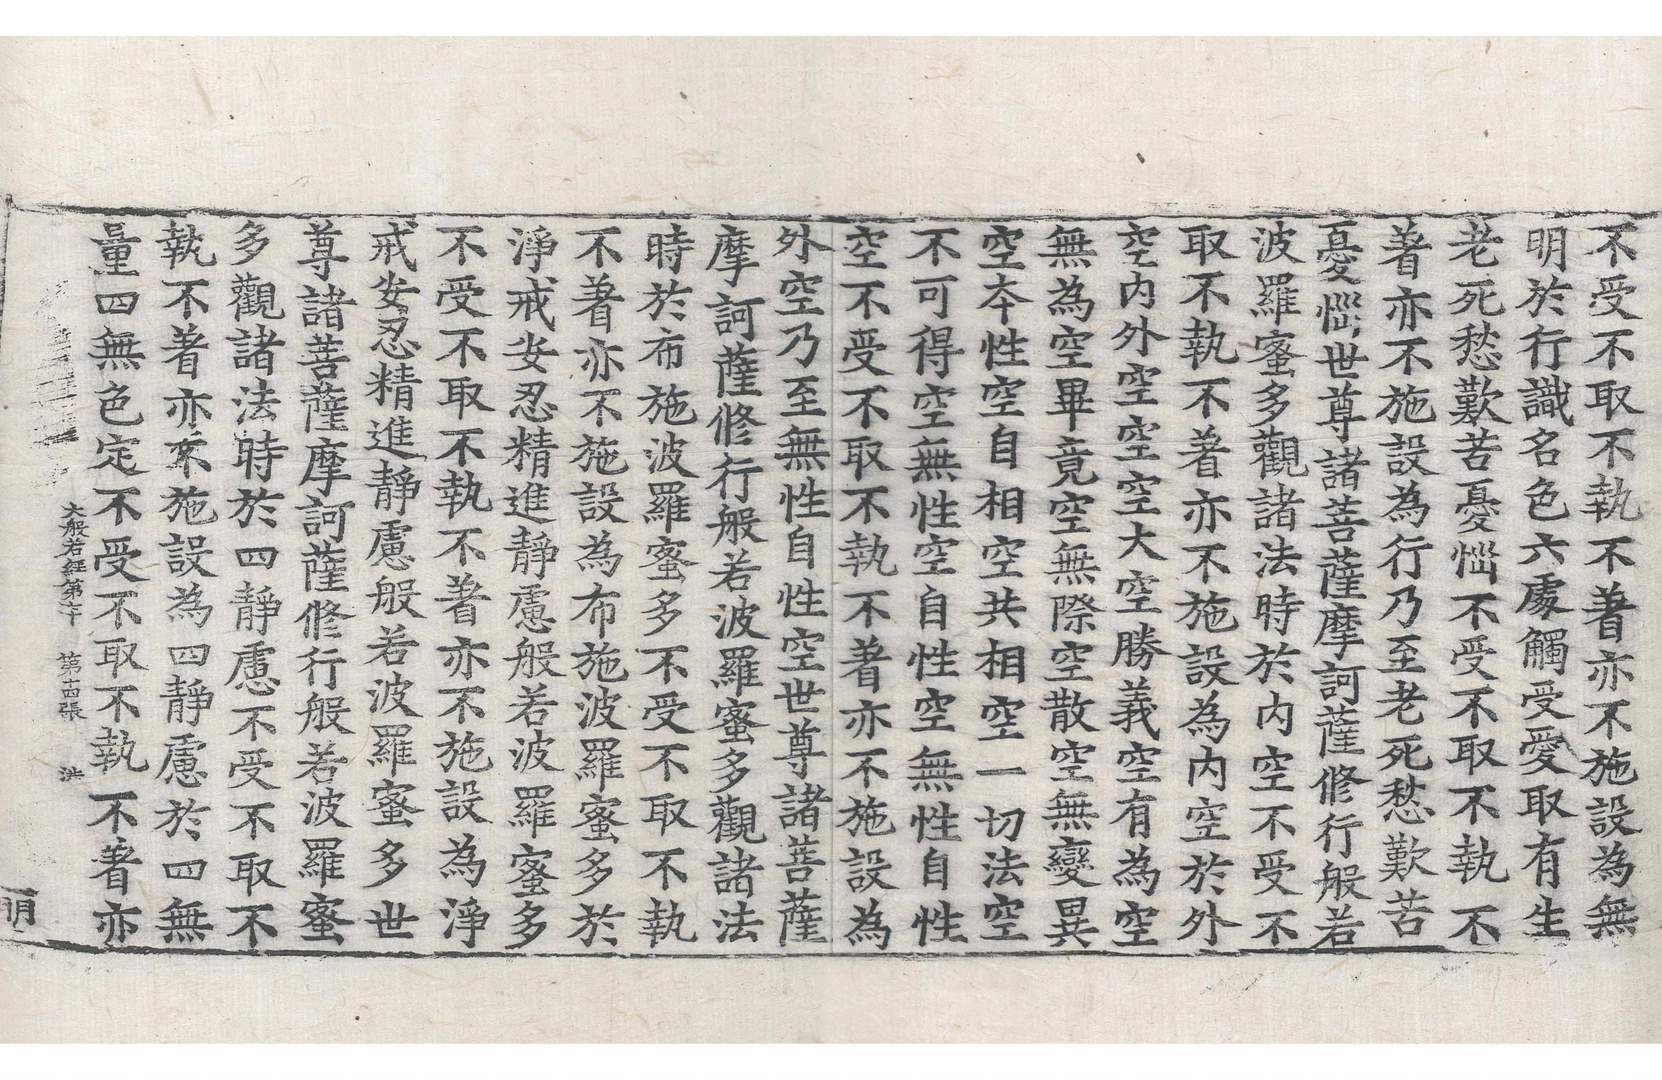 不受不取不執不著亦不施設為無
明於行識名色六處觸受愛取有生
老死愁歎苦憂惱不受不取不執不
著亦不施設為行乃至老死愁歎苦
憂惱世尊諸菩薩摩訶薩修行般若
波羅蜜多觀諸法時於內空不受不
取不執不著亦不施設為內空於外
空內外空空空大空勝義空有為空
無為空畢竟空無際空散空無變異
空本性空自相空共相空一切法空
不可得空無性空自性空無性自性
空不受不取不執不著亦不施設為
外空乃至無性自性空世尊諸菩薩
摩訶薩修行般若波羅蜜多觀諸法
時於布施波羅蜜多不受不取不執
不著亦不施設為布施波羅蜜多於
淨戒安忍精進靜慮般若波羅蜜多
不受不取不執不著亦不施設為淨
戒安忍精進靜慮般若波羅蜜多世
尊諸菩薩摩訶薩修行般若波羅蜜
多觀諸法時於四靜慮不受不取不
執不著亦不施設為四靜慮於四無
量四無色定不受不取不執不著亦
大般若經第 第十四張 洪